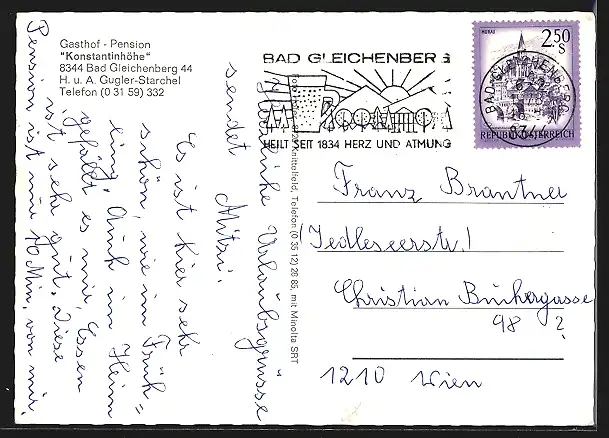 Gasthof - Pension
"Konstantinhöhe"
8344 Bad Gleichenberg 44
H. u. A. Gugler-Starchel
Telefon (0 31 59) 332
BAD GLEICHENBERG
HEILT SEIT 1834 HERZ UND ATMUNG
MURAU
2.50
S
REPUBLIK ÖSTERREICH
BAD GLEICHENBERG
8344
Knittelfeld, Telefon (0 35 12) 26 85, mit Minolta SRT
Franz Brantner
(Jedleseerstr.)
Christian Buchergasse
98 ?
1210 Wien
Urlaubsgrüsse
sendet Mitzi.
Es ist hier sehr
schön, wie im Früh=
ling. Auch im Heim
gefällt es mir, Essen
ist sehr gut. Diese
Pension ist nur 10 Min. von mir.